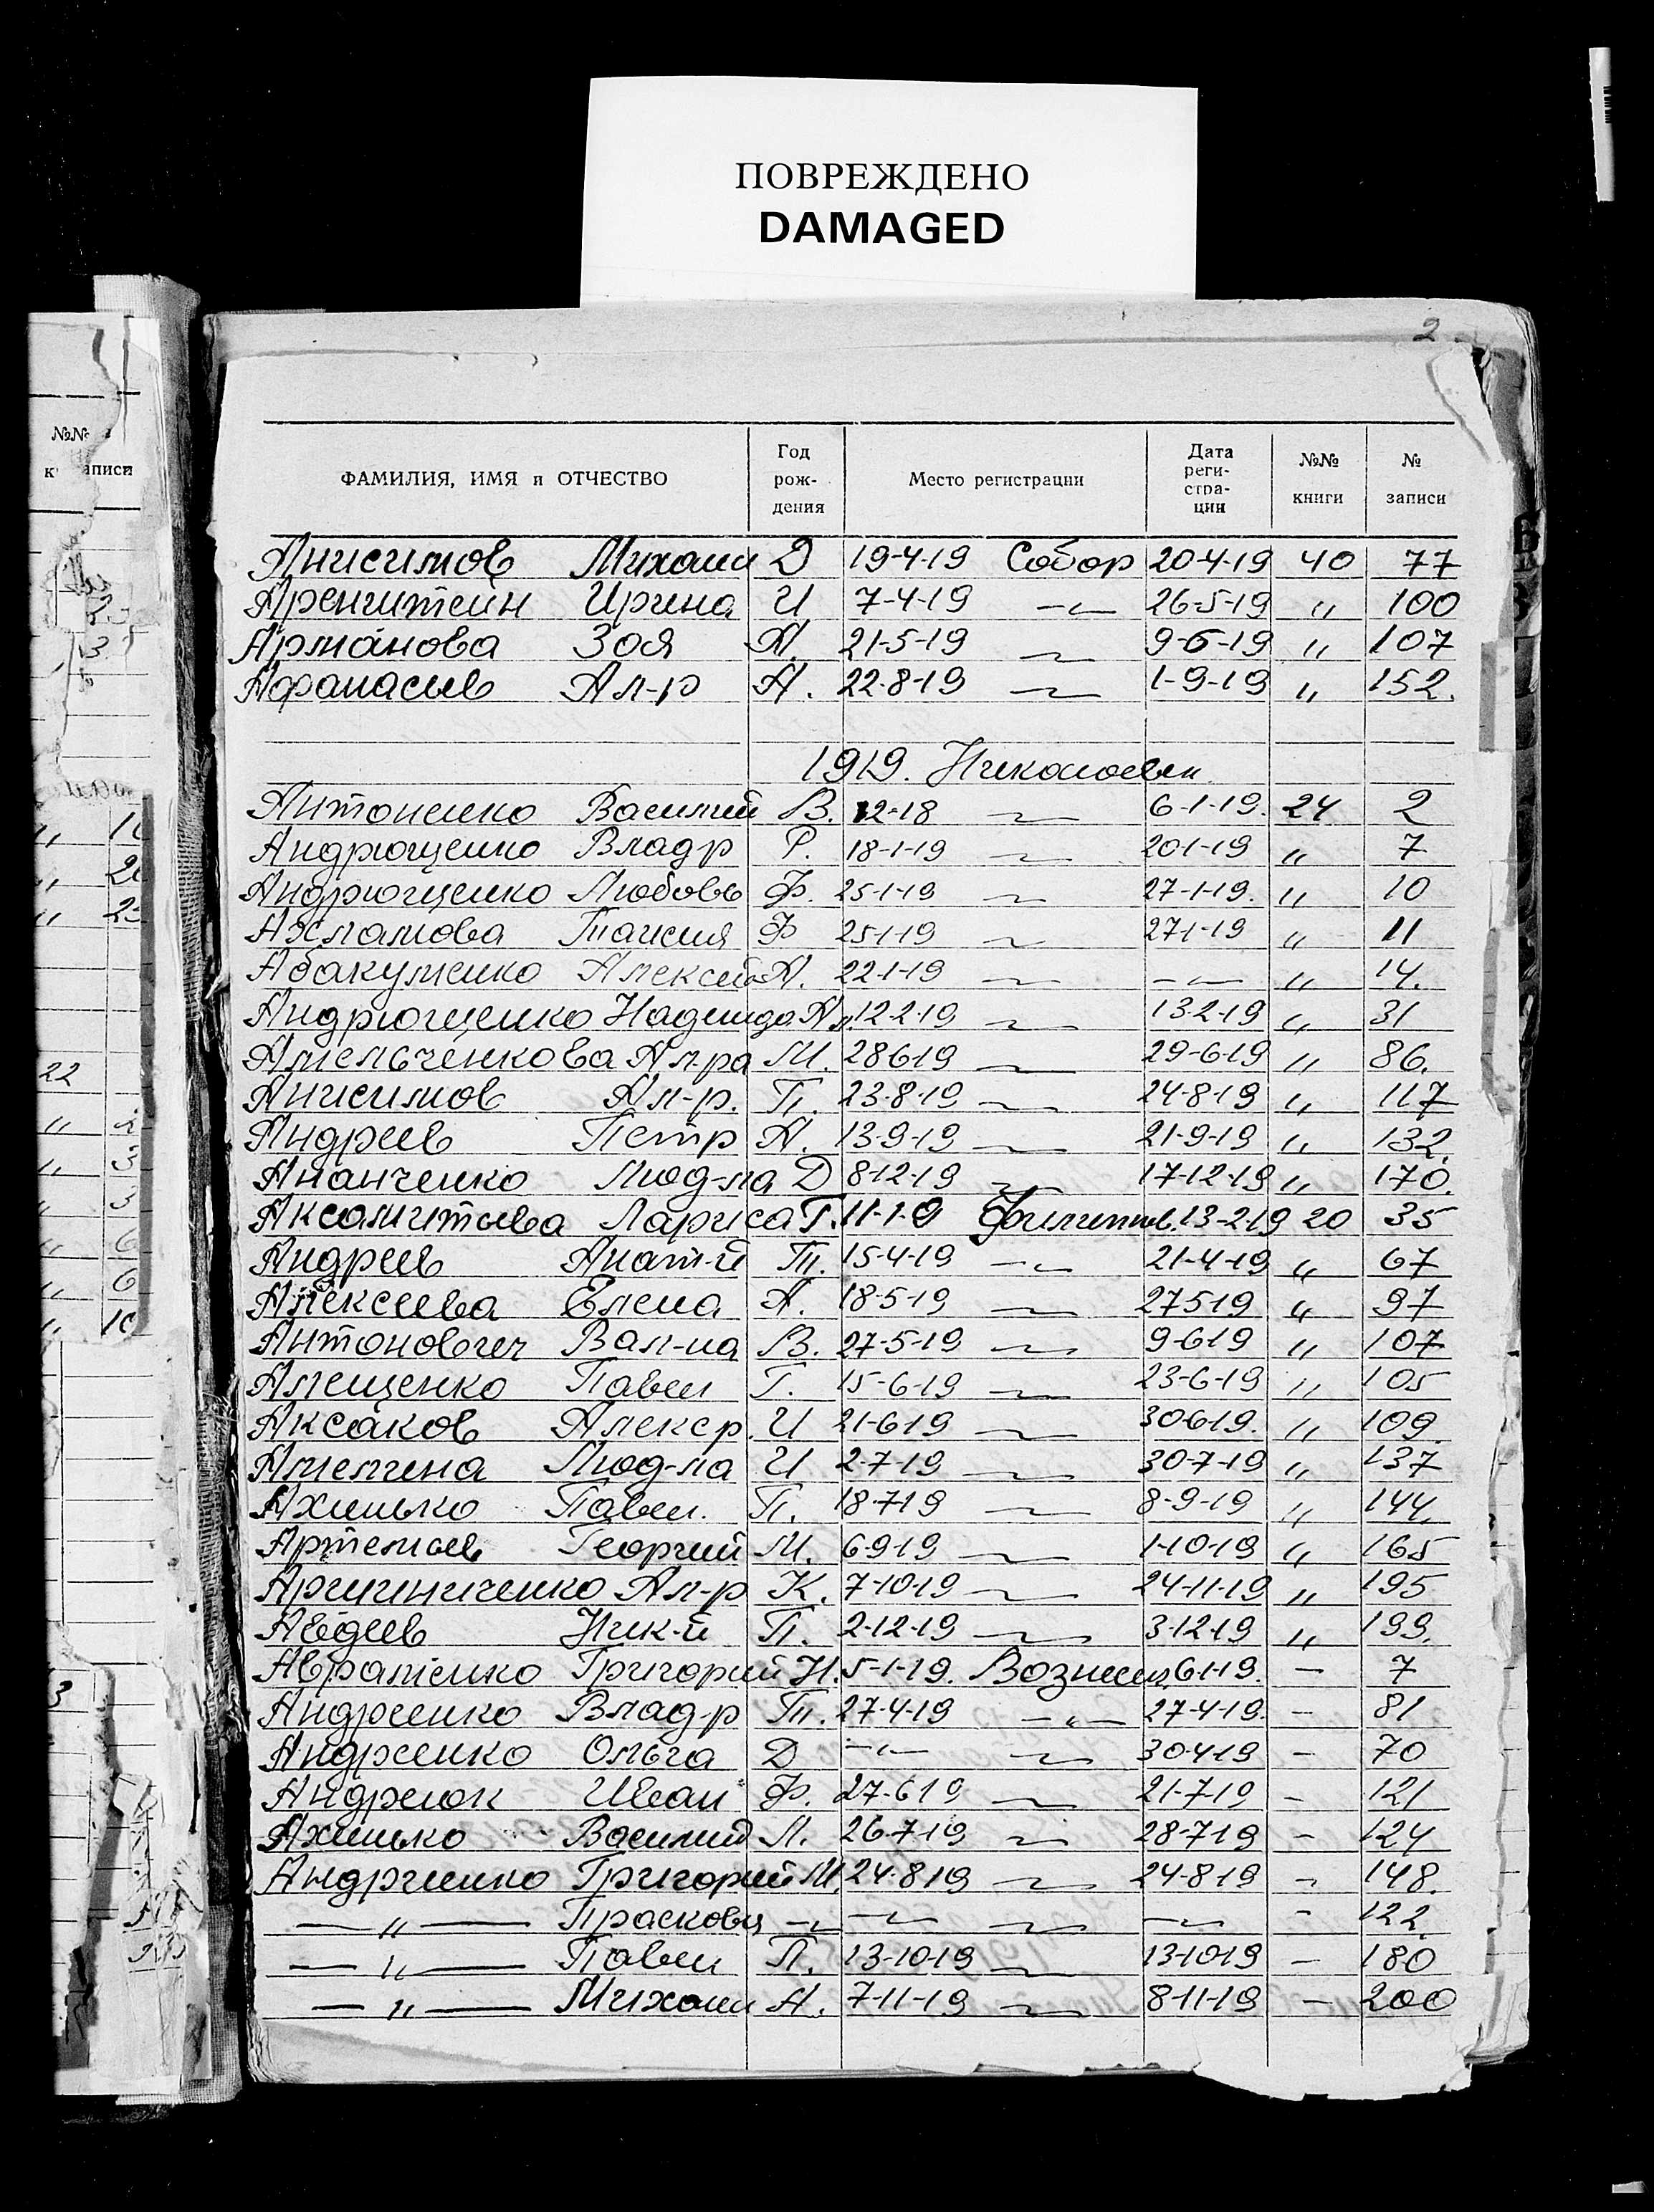 ПОВРЕЖДЕНО
DAMAGED
2
ФАМИЛИЯ, ИМЯ и ОТЧЕСТВО Год рождения Место регистрации Дата регистрации №№ книги № записи
Анисимов Михаил Д 19-4-19 Собор 20-4-19 40 77
Аренштейн Ирина И 7-4-19 —〃— 26-5-19 〃 100
Арманова Зоя А. 21-5-19 〃 9-6-19 〃 107
Афанасьев Ал-р А. 22-8-19 〃 1-9-19 〃 152.
1919. Николаевск
Антоненко Василий В. 12-18 〃 6-1-19. 24 2
Андрющенко Влад-р Р. 18-1-19 〃 20-1-19 〃 7
Андрющенко Любовь Ф. 25-1-19 〃 27-1-19. 〃 10
Ахламова Таисия Ф 25-1-19 〃 27-1-19 〃 11
Абакуменко Алексей А. 22-1-19 〃 —〃— 〃 14.
Андрющенко Надежда 12-2-19 〃 13-2-19 〃 31
Амельченкова Ал-ра М. 28-6-19 〃 29-6-19 〃 86.
Анисимов Ал-р. П. 23-8-19 〃 24-8-19 〃 117
Андреев Петр А. 13-9-19 〃 21-9-19 〃 132.
Ананченко Люд-ла Д 8-12-19 〃 17-12-19 〃 170.
Лариса Г. 11-1-19 Филиппов. 13-2-19 20 35
Андреев Анат-й Т. 15-4-19 —〃— 21-4-19 〃 67
Алексеева Елена А. 18-5-19 〃 27-5-19 〃 97
Антонович Вал-на В. 27-5-19 〃 9-6-19 〃 107
Алещенко Павел Г. 15-6-19 〃 23-6-19 〃 105
Аксаков Алекс-р И 21-6-19 〃 30-6-19. 〃 109.
Амелина Люд-ла И 2-7-19 〃 30-7-19 〃 137
Ахинько Павел. П. 18-7-19 〃 8-9-19 〃 144.
Артемьев Георгий М. 6-9-19 〃 1-10-19 〃 165
Ал-р К. 7-10-19 〃 24-11-19 〃 195
Авдеев Ник-й П. 2-12-19 〃 3-12-19 〃 199.
Авраменко Григорий Н. 5-1-19. Вознесен. 6-1-19. — 7
Андриенко Влад-р Т. 27-4-19 —〃— 27-4-19. — 81
Андриенко Ольга Д —〃— 〃 30-4-19 — 70
Андреюк Иван Ф. 27-6-19 〃 21-7-19 — 121
Ахинько Василий Л. 26-7-19 〃 28-7-19 — 124
Андриенко Григорий М. 24-8-19 〃 24-8-19 — 148.
—〃— Прасковя —〃— —〃— 〃 —〃— — 122.
—〃— Павел П. 13-10-19 〃 13-10-19 — 180
—〃— Михаил А. 7-11-19 〃 8-11-19 — 200